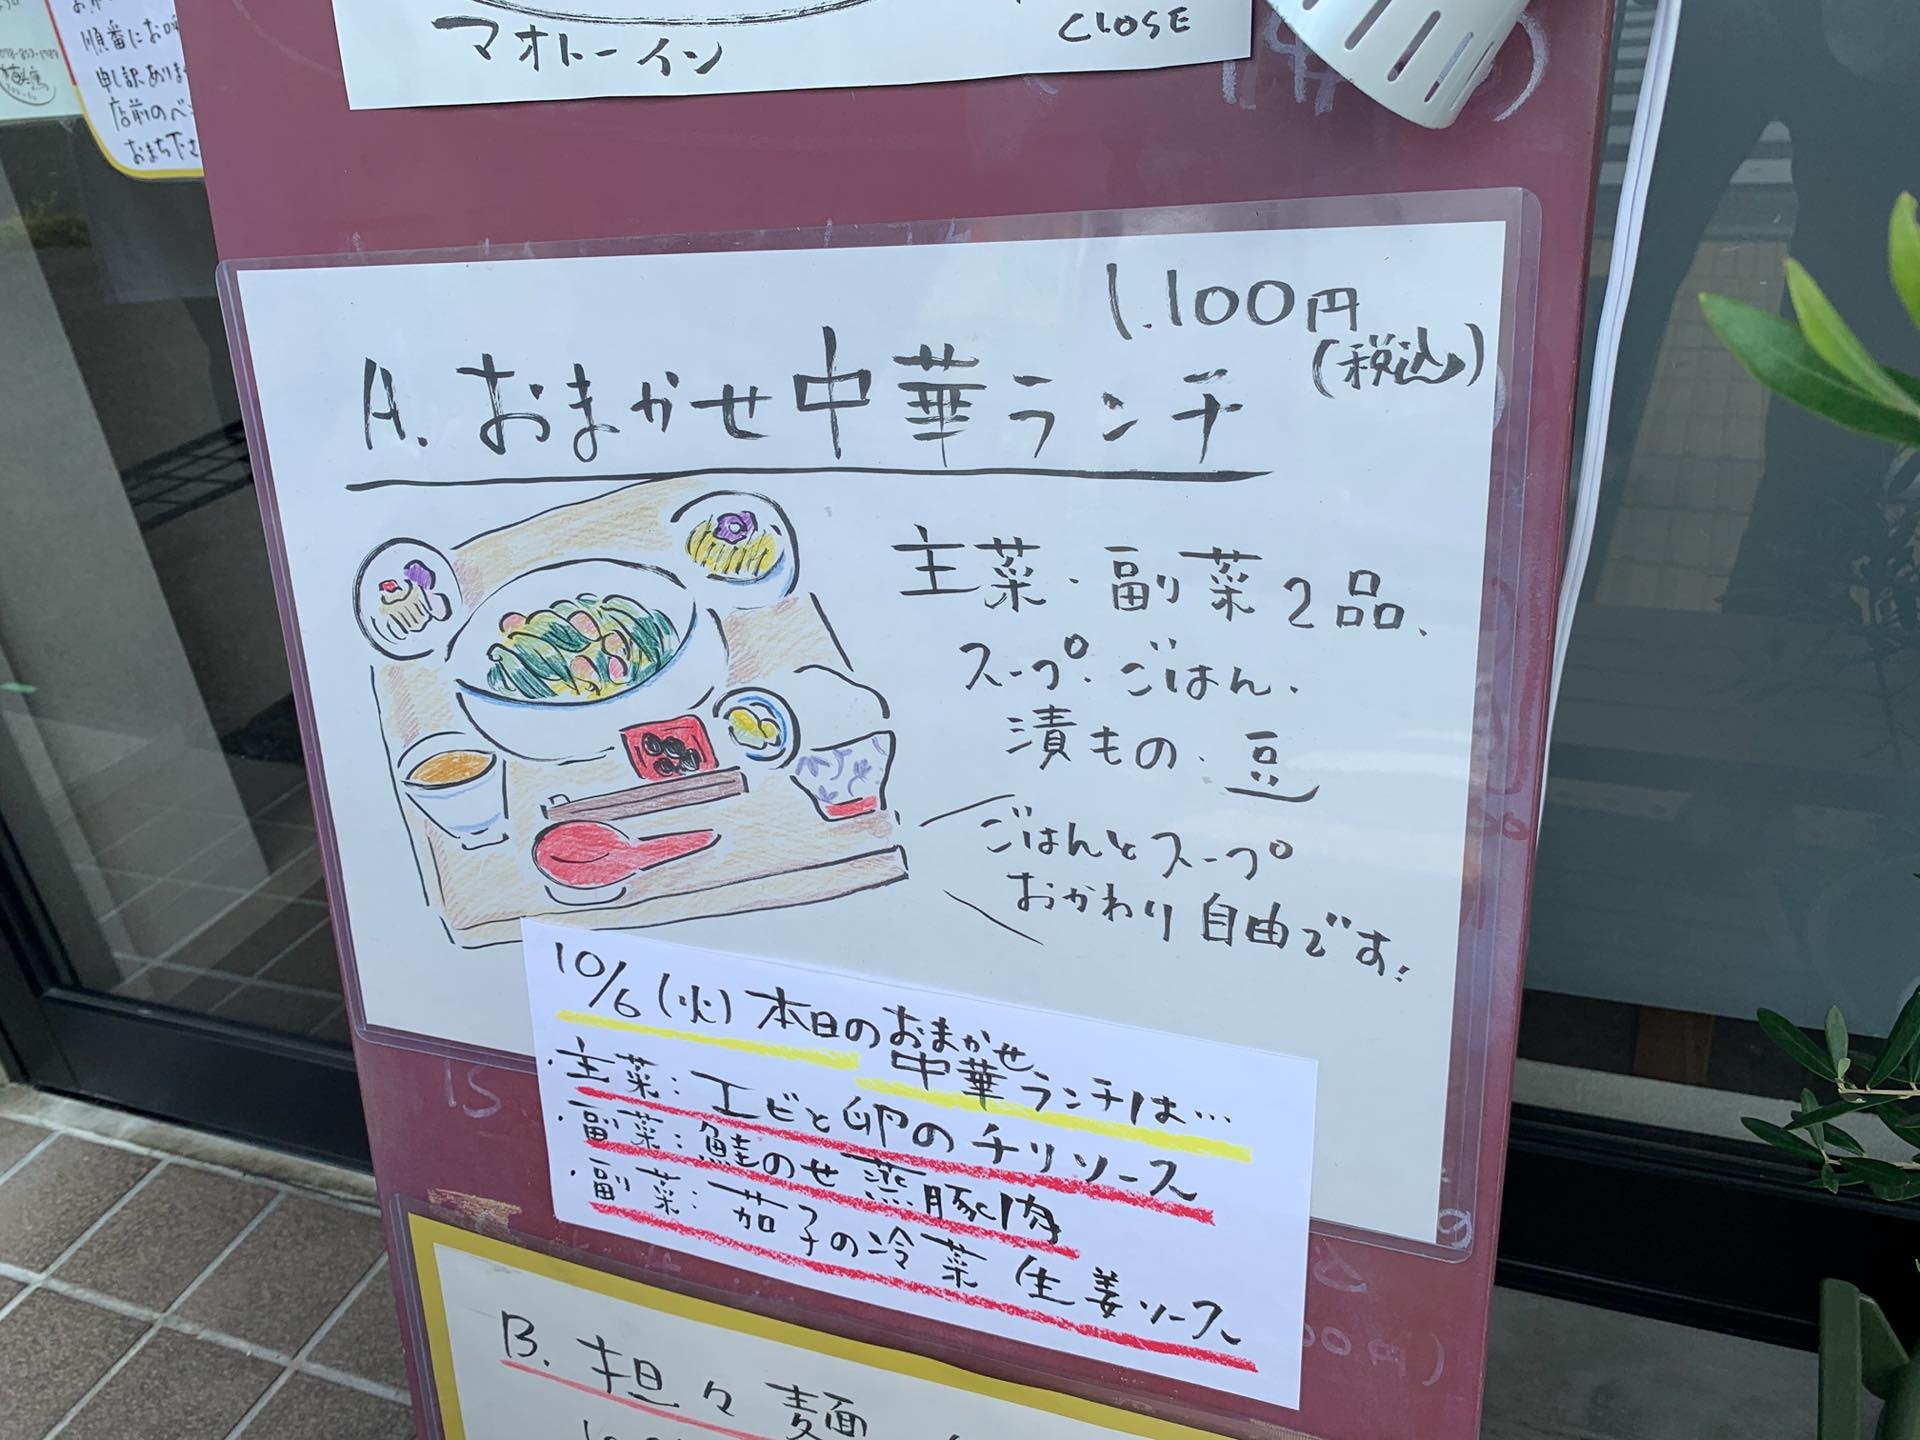 順番にお
申し訳あり
店前のベ
おまち下さ
マオトーイン
CLOSE
1.100円
(税込)
A. おまかせ中華ランチ
主菜・副菜2品、
スープ・ごはん、
漬もの・豆
ごはんとスープ
おかわり自由です!
10/6(火)本日のおまかせ
中華ランチは…
・主菜:エビと卵のチリソース
・副菜:鮭のせ蒸豚肉
・副菜:茄子の冷菜 生姜ソース
B. 担々麺